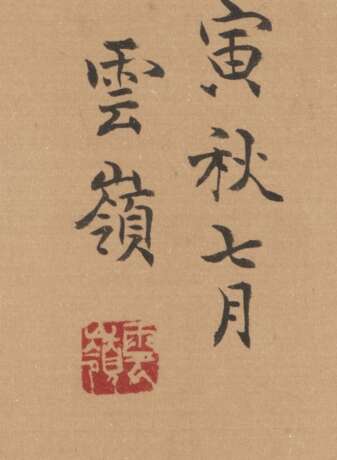 寅秋七月
雲嶺
雲嶺